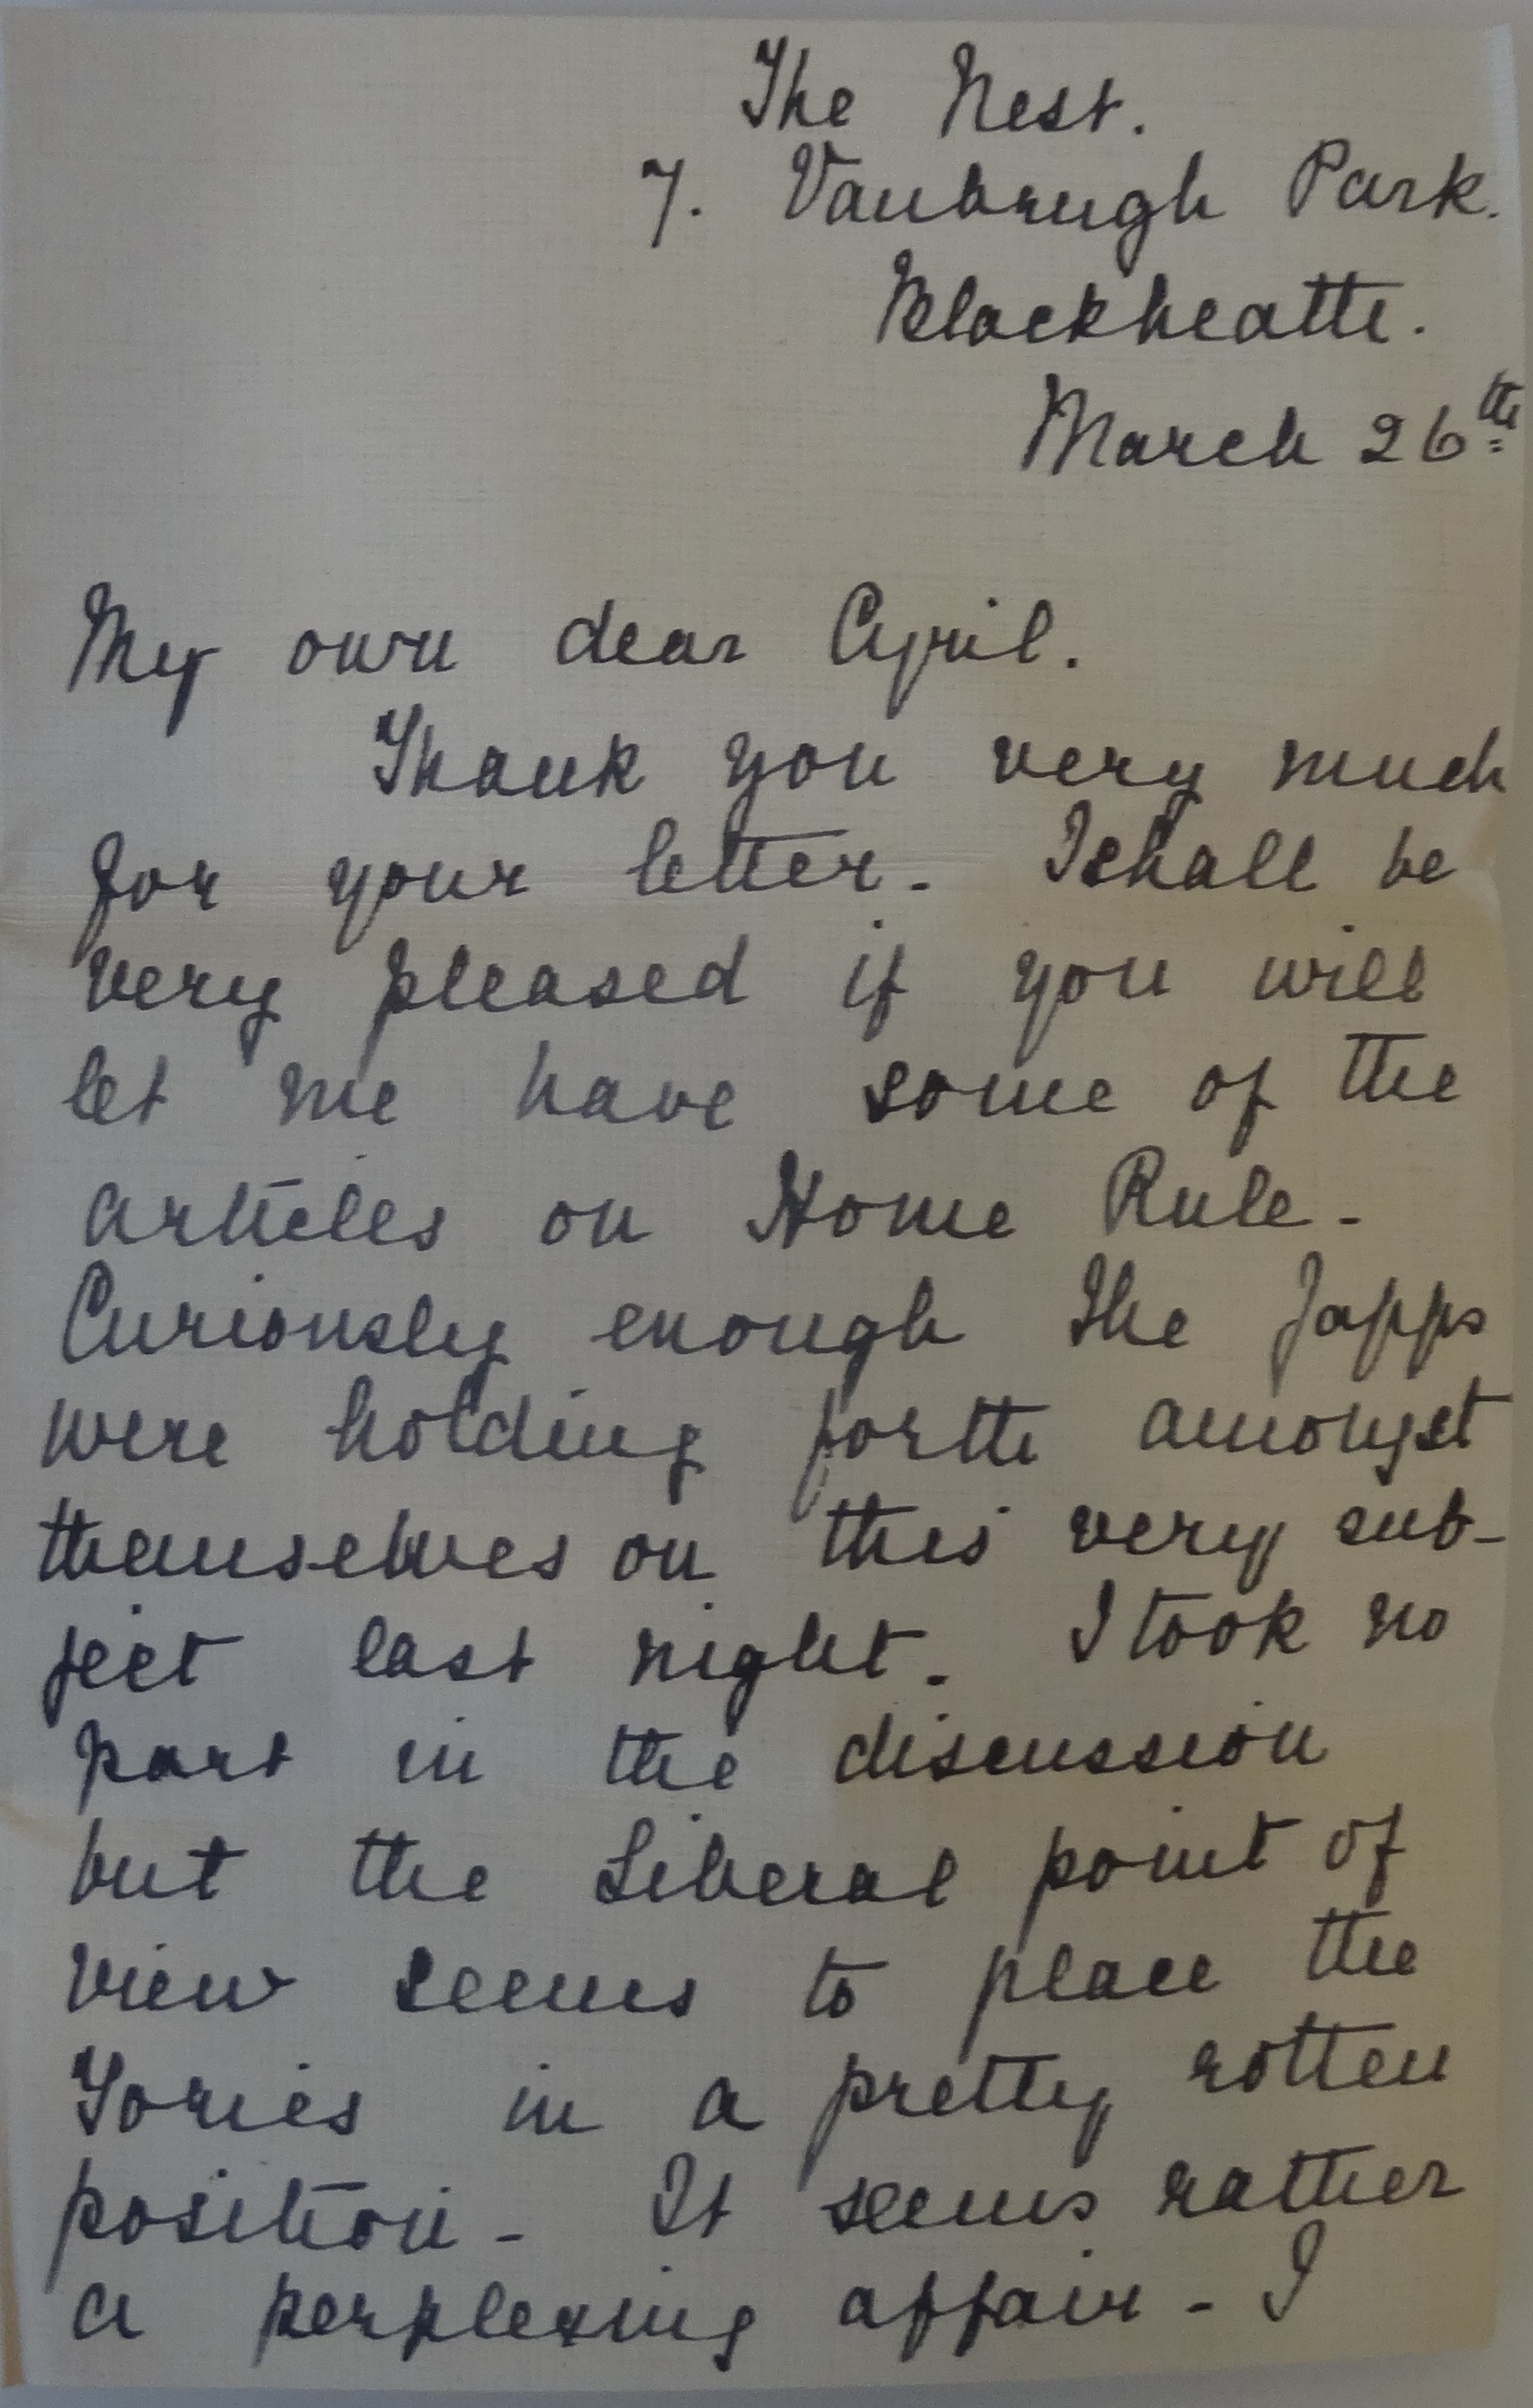 The Nest.
7. Vanbrugh Park.
Blackheath.
March 26th
My own dear Cyril.
Thank you very much
for your letter. I shall be
very pleased if you will
let me have some of the
articles on Home Rule.
Curiously enough the Japps
were holding forth amongst
themselves on this very sub-
ject last night. I took no
part in the discussion
but the Liberal point of
view seems to place the
Tories in a pretty rotten
position. It seems rather
a perplexing affair. I